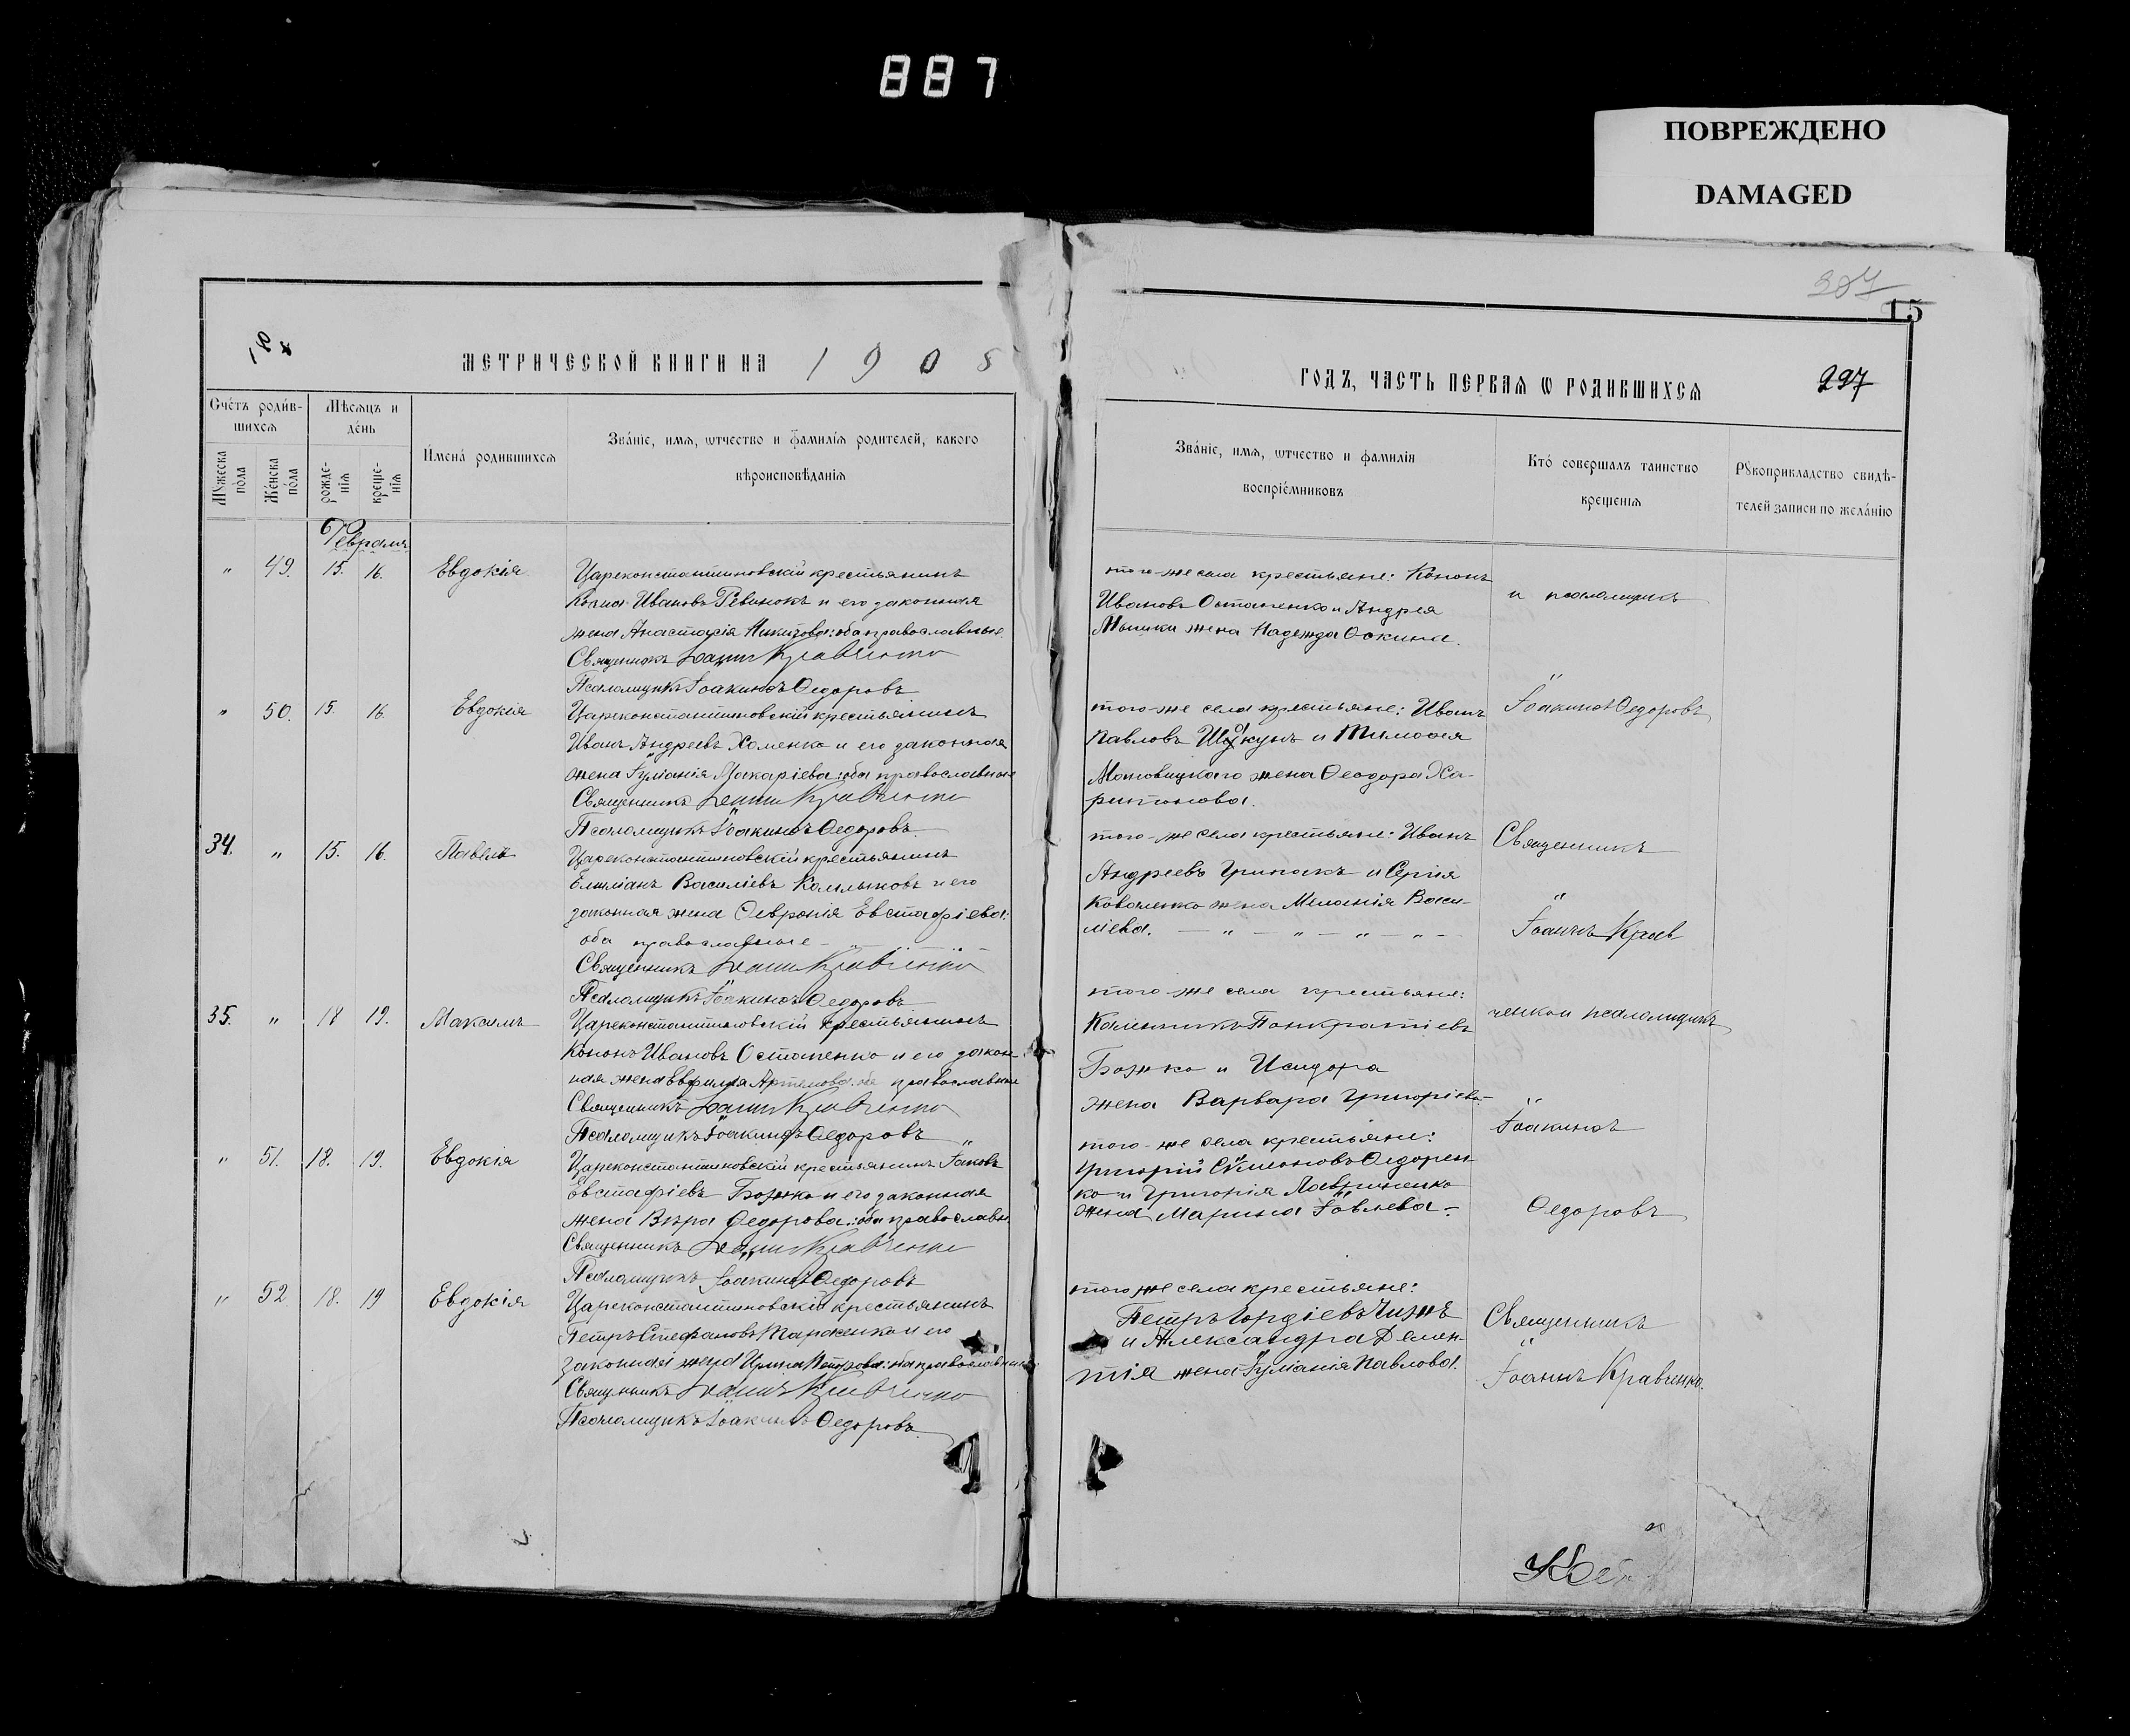 887
ПОВРЕЖДЕНО
DAMAGED
15
297
МЕТРИЧЕСКОЙ КНИГИ НА 1908
ГОДЪ, ЧАСТЬ ПЕРВАѦ Ѡ РОДИВШИХСѦ
Счётъ родив-
шихсѧ
Мѣсѧцъ и
день
Имена родившихсѧ
Званіе, имѧ, ѿчество и фамиліѧ родителей, какого
вѣроисповѣданіѧ
Мꙋжеска пола
Женска пола
рожде-
ніѧ
креще-
ніѧ
Званіе, имѧ, ѿчество и фамиліѧ
воспріемниковъ
Кто совершалъ таинство
крещеніѧ
Рꙋкоприкладство свидѣ-
телей записи по желанію
Февраль
" 49. 15. 16. Евдокія
Цареконстантиновскій крестьянинъ
Косма Ивановъ Ревинокъ и его законная
жена Анастасія Никитова: оба православные.
Священникъ Іоаннъ Кравченко
Псаломщикъ Іоакимъ Ѳедоровъ
того-же села крестьяне: Кононъ
Ивановъ Остапенко и Андрея
Мышки жена Надежда Фокина.
и псаломщикъ
" 50. 15. 16. Евдокія
Цареконстантиновскій крестьянинъ
Иванъ Андреевъ Хоменко и его законная
жена Іуліанія Макаріева: оба православные
Священникъ Іоаннъ Кравченко
Псаломщикъ Іоакимъ Ѳедоровъ.
того-же села крестьяне: Иванъ
Павловъ и Тимоѳея
жена Ѳеодора Ха-
ритонова.
Іоакимъ Ѳедоровъ
34. " 15. 16. Павелъ
Цареконстантиновскій крестьянинъ
Емиліанъ Василіевъ Калмыковъ и его
законная жена Февронія Евстафіева:
оба православные - " -
Священникъ Іоаннъ Кравченко
Псаломщикъ Іоакимъ Ѳедоровъ
того-же села крестьяне: Иванъ
Андреевъ Гринакъ и Сергія
Коваленко жена Меланія Васи-
ліева. - " - " - " - " -
Священникъ
Іоаннъ Крав
35. " 18 19. Максимъ
Цареконстантиновскій крестьянинъ
Кононъ Ивановъ Остапенко и его закон-
ная жена Евфимія Артемова: оба православные
Священникъ Іоаннъ Кравченко
Псаломщикъ Іоакимъ Ѳедоровъ
того-же села крестьяне:
Каллиникъ Панкратіевъ
Божко и Исидора
жена Варвара Григоріева-
ченко и псаломщикъ
Іоакимъ
" 51. 18. 19. Евдокія
Цареконстантиновскій крестьянинъ Іаковъ
Евстафіевъ Божко и его законная
жена Вѣра Ѳедорова: оба православн.
Священникъ Іоаннъ Кравченко
Псаломщикъ Іоакимъ Ѳедоровъ
того-же села крестьяне:
Григорій Сѵмеоновъ Ѳедорен
ко и Григорія Лавриненко
жена Марина Іовлева-
Ѳедоровъ
" 52 18. 19 Евдокія
Цареконстантиновскій крестьянинъ
Петръ Стефановъ Тараненко и его
законная жена Ирина Петрова: оба православные:
Священникъ Іоаннъ Кравченко
Псаломщикъ Іоакимъ Ѳедоровъ.
того же села крестьяне:
Петръ Гордіевъ Чижъ
и Александра Демен-
тія жена Іуліанія Павлова.
Священникъ
Іоаннъ Кравченко.